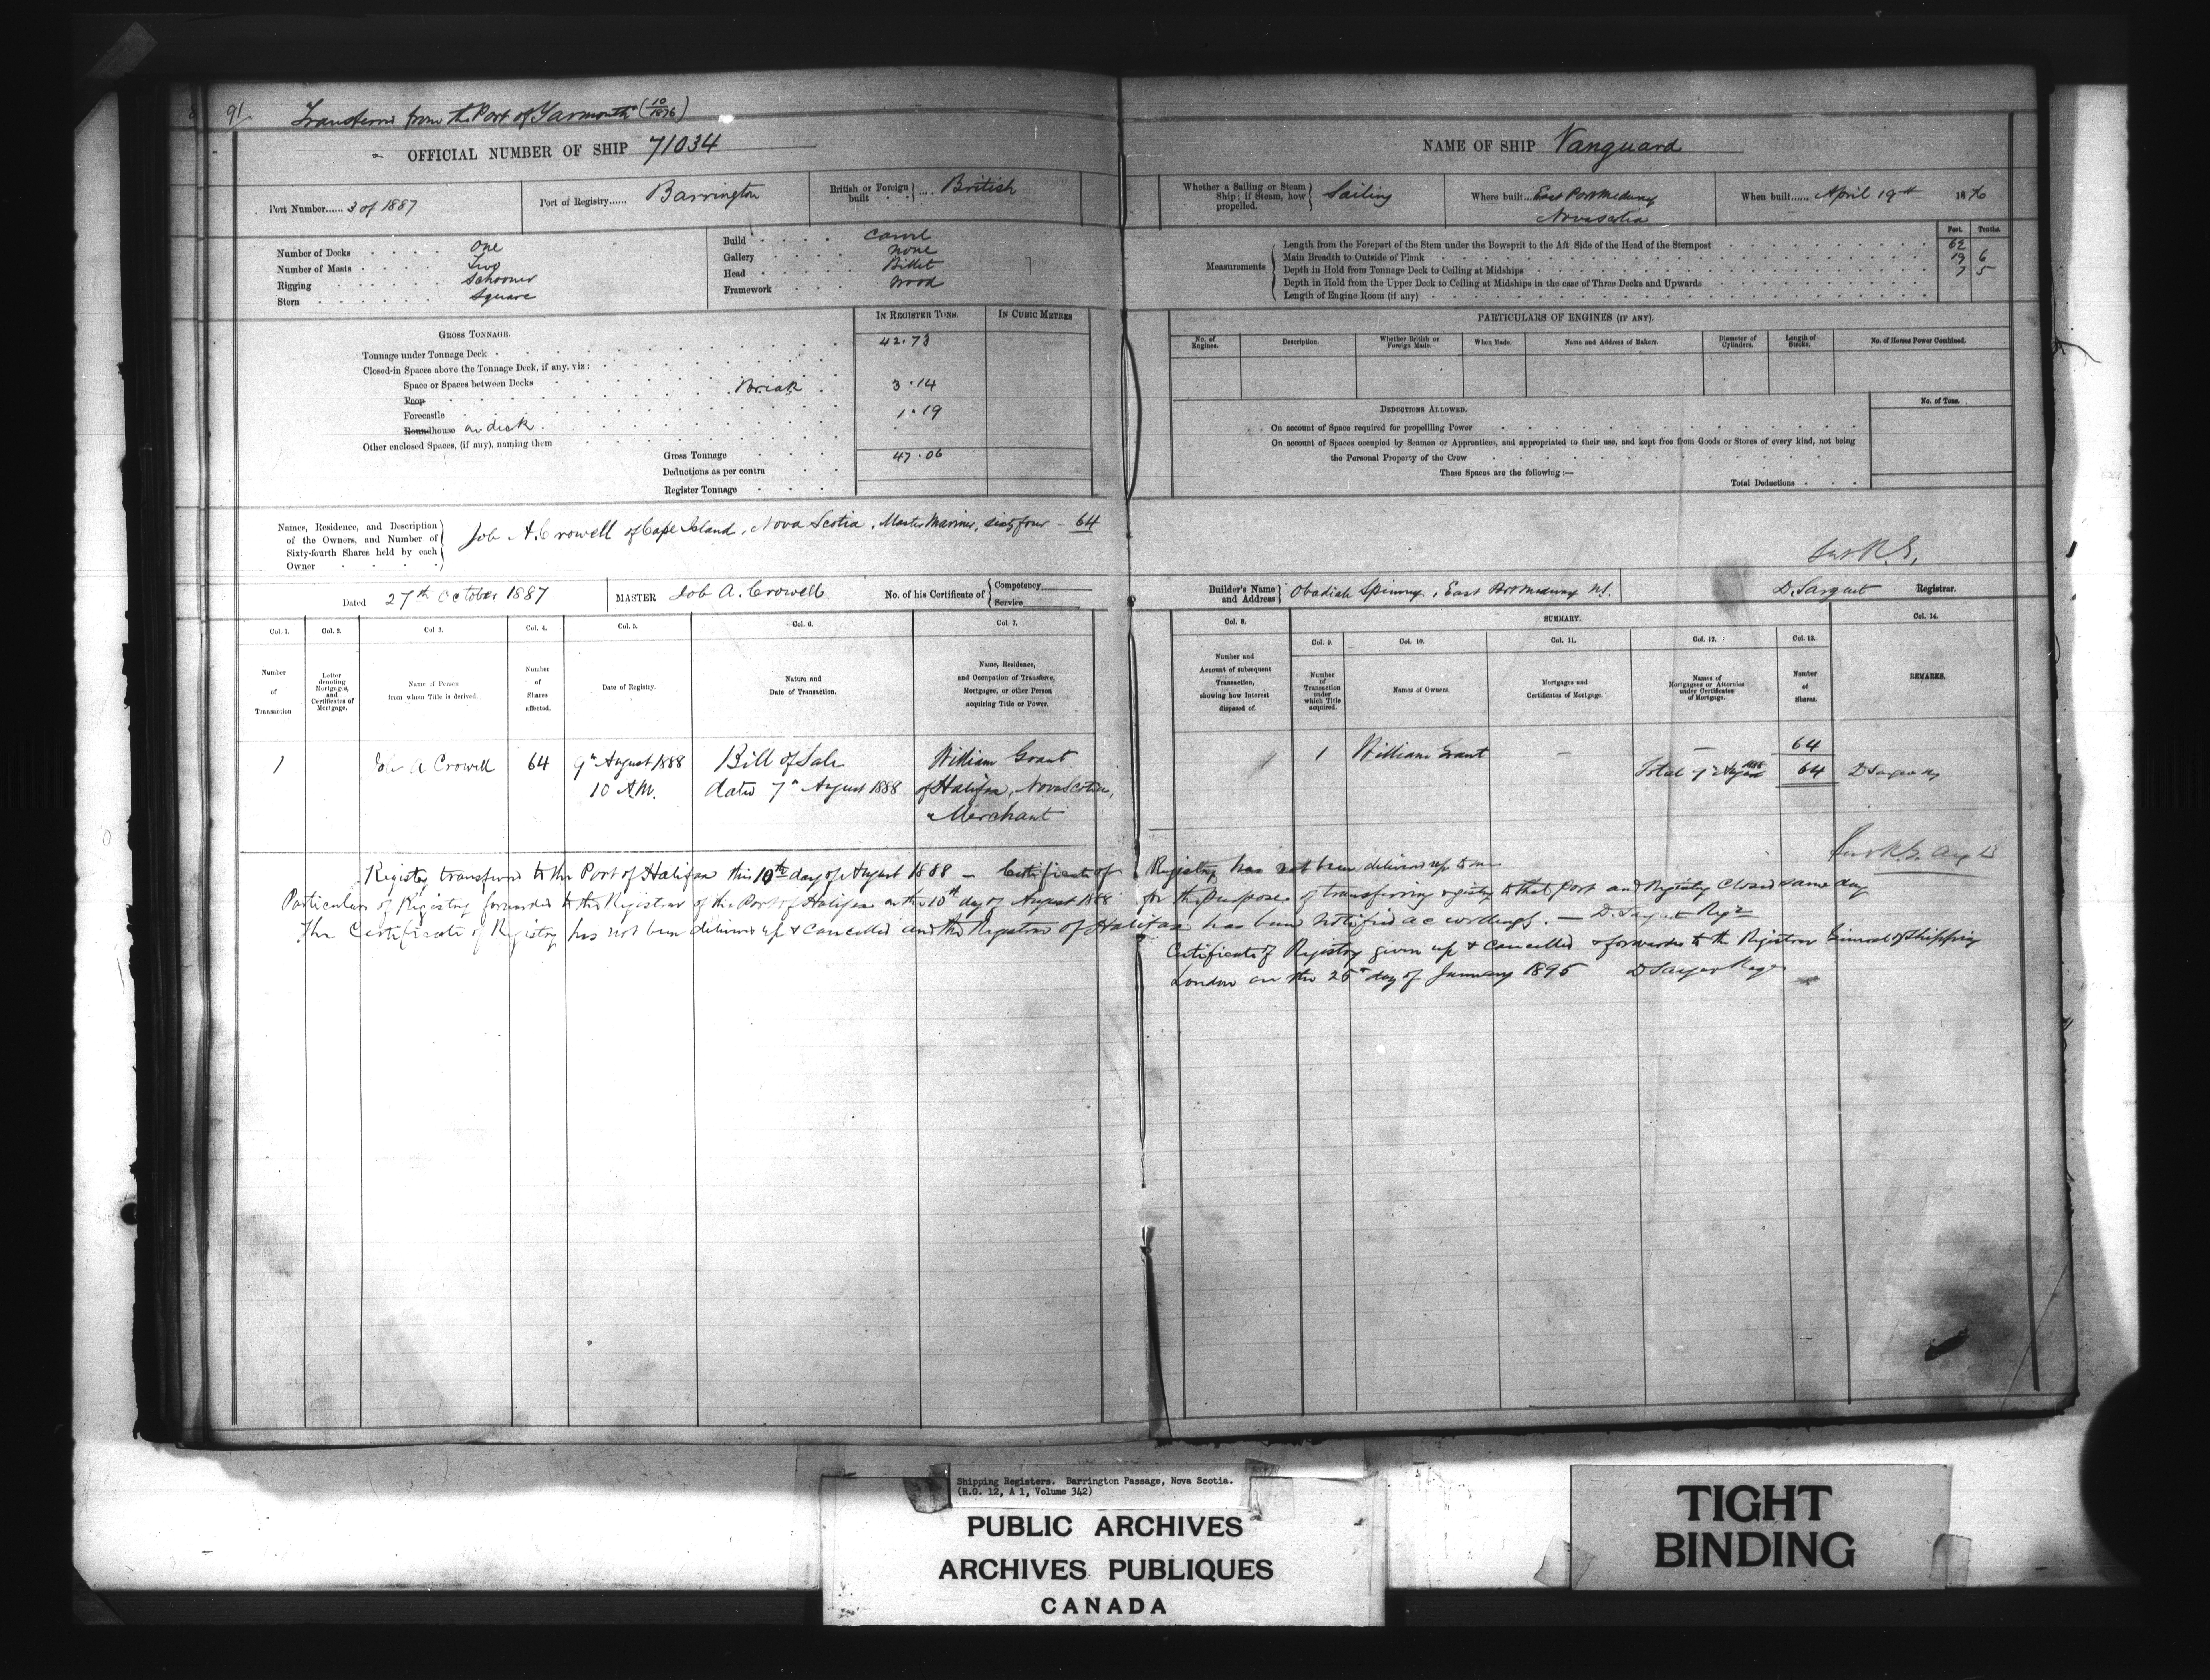 91
Transferred from the Port of Yarmouth (10/1876)
OFFICIAL NUMBER OF SHIP 71034
NAME OF SHIP Vanguard
Port Number...... 3 of 1887
Port of Registry...... Barrington
British or Foreign built .... British
Whether a Sailing or Steam Ship; if Steam, how propelled. Sailing
Where built... East Port Medway Nova Scotia
When built...... April 19th 1876
Number of Decks One
Number of Masts Two
Rigging Schooner
Stern Square
Build Carvel
Gallery none
Head Billet
Framework wood
Feet. Tenths.
Measurements
Length from the Forepart of the Stem under the Bowsprit to the Aft Side of the Head of the Sternpost 62
Main Breadth to Outside of Plank 19 6
Depth in Hold from Tonnage Deck to Ceiling at Midships 7 5
Depth in Hold from the Upper Deck to Ceiling at Midships in the case of Three Decks and Upwards
Length of Engine Room (if any)
GROSS TONNAGE.
IN REGISTER TONS. IN CUBIC METRES
Tonnage under Tonnage Deck 42.73
Closed-in Spaces above the Tonnage Deck, if any, viz:
Space or Spaces between Decks Break 3.14
Poop
Forecastle 1.19
Roundhouse on deck
Other enclosed Spaces, (if any), naming them
Gross Tonnage 47.06
Deductions as per contra
Register Tonnage
PARTICULARS OF ENGINES (IF ANY).
No. of Engines. Description. Whether British or Foreign Made. When Made. Name and Address of Makers. Diameter of Cylinders. Length of Stroke. No. of Horses Power Combined.
DEDUCTIONS ALLOWED. No. of Tons.
On account of Space required for propellling Power
On account of Spaces occupied by Seamen or Apprentices, and appropriated to their use, and kept free from Goods or Stores of every kind, not being
the Personal Property of the Crew
These Spaces are the following:—
Total Deductions
Names, Residence, and Description of the Owners, and Number of Sixty-fourth Shares held by each Owner
Job A. Crowell of Cape Island, Nova Scotia, Master Mariner, sixty four – 64
Dated 27th October 1887
MASTER Job A. Crowell
No. of his Certificate of Competency Service
Builder's Name and Address Obadiah Spinney, East Port Medway NS.
D. Sargent Registrar.
Col. 1. Col. 2. Col. 3. Col. 4. Col. 5. Col. 6. Col. 7. Col. 8. SUMMARY. Col. 14.
Col. 9. Col. 10. Col. 11. Col. 12. Col. 13.
Number of Transaction
Letter denoting Mortgages, and Certificates of Mortgage.
Name of Person from whom Title is derived.
Number of Shares affected.
Date of Registry.
Nature and Date of Transaction.
Name, Residence, and Occupation of Transferee, Mortgagee, or other Person acquiring Title or Power.
Number and Account of subsequent Transaction, showing how Interest disposed of.
Number of Transaction under which Title acquired.
Names of Owners.
Mortgages and Certificates of Mortgage.
Names of Mortgagees or Attornies under Certificates of Mortgage.
Number of Shares.
REMARKS.
1 Job A Crowell 64 9th August 1888 10 A.M. Bill of Sale dated 7th August 1888 William Grant of Halifax, Nova Scotia, Merchant
1 William Grant – – 64
Total 64 D Sargent
Register transferred to the Port of Halifax this 10th day of August 1888 – Certificate of Registry has not been delivered up to me
for the purpose of transferring registry to that Port and Registry Closed same day
Particulars of Registry forwarded to the Registrar of the Port of Halifax on the 10th day of August 1888
The Certificate of Registry has not been delivered up & cancelled and the Registrar of Halifax has been notified accordingly. — D. Sargent Regr
Certificate of Registry given up & cancelled & forwarded to the Registrar General of Shipping
London on the 25th day of January 1895 D Sargent
Shipping Registers. Barrington Passage, Nova Scotia.
(R.G. 12, A 1, Volume 342)
PUBLIC ARCHIVES
ARCHIVES PUBLIQUES
CANADA
TIGHT
BINDING